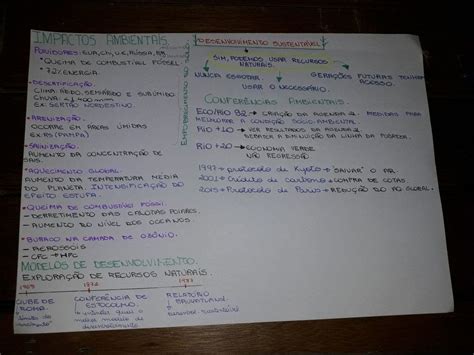 IMPACTOS AMBIENTAIS
POLUIDORES: EUA, CHI, UE, RÚSSIA, BR
* QUEIMA DE COMBUSTÍVEL FÓSSIL
* 72% ENERGIA.
* DESERTIFICAÇÃO
CLIMA ÁRIDO, SEMIÁRIDO E SUBÚMIDO
CHUVA < 1400 mm
EX: SERTÃO NORDESTINO.
* ARENIZAÇÃO.
OCORRE EM ÁREAS ÚMIDAS
EX RS (PAMPA)
* SALINIZAÇÃO.
AUMENTO DA CONCENTRAÇÃO DE
SAIS.
* AQUECIMENTO GLOBAL.
AUMENTA DA TEMPERATURA MÉDIA
DO PLANETA. INTENSIFICAÇÃO DO
EFEITO ESTUFA.
* QUEIMA DE COMBUSTÍVEL FÓSSIL:
- DERRETIMENTO DAS CALOTAS POLARES.
- AUMENTO DO NÍVEL DOS OCEANOS.
* BURACO NA CAMADA DE OZÔNIO.
- AEROSSÓIS
- CFC → HFC
MODELOS DE DESENVOLVIMENTO.
EXPLORAÇÃO DE RECURSOS NATURAIS.
1968 1972 1987
CLUBE DE ROMA
CONFERÊNCIA DE ESTOCOLMO.
RELATÓRIO
EMPOBRECIMENTO DO SOLO
DESENVOLVIMENTO SUSTENTÁVEL
SIM, PODEMOS USAR RECURSOS
NATURAIS.
NUNCA ESGOTAR.
GERAÇÕES FUTURAS TENHAM
ACESSO.
USAR O NECESSÁRIO.
CONFERÊNCIAS AMBIENTAIS.
ECO/RIO 92 → CRIAÇÃO DA AGENDA 21. MEDIDAS PARA
MELHORAR A CONDIÇÃO SÓCIO AMBIENTAL.
RIO +10 → VER RESULTADOS DA AGENDA 21
DEBATER A DIMINUIÇÃO DA LINHA DA POBREZA.
RIO +20 → ECONOMIA VERDE
NÃO REGRESSÃO
1997 → protocolo de Kyoto → SALVAR O AR.
2001 → Crédito de carbono → COMPRA DE COTAS
2015 → Protocolo de Paris → REDUÇÃO DO AQ GLOBAL.